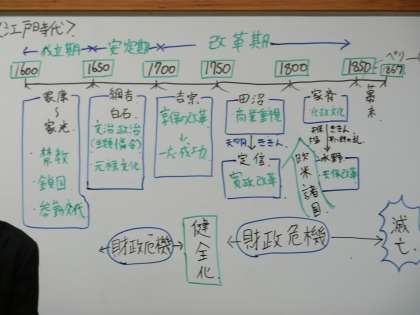 江戸時代
成立期 安定期 改革期
1600 1650 1700 1750 1800 1850 1867
ペリー
家康
～
家光
禁教
鎖国
参勤交代
綱吉
白石
文治政治
(生類憐令)
元禄文化
吉宗
享保の改革
↓
一応成功
田沼
商業重視
天明 ききん
定信
寛政改革
家斉
化政文化
ききん
水野
天保改革
欧米諸国
幕末
財政危機
健全化
財政危機
滅亡